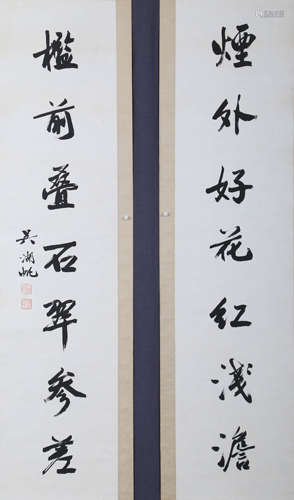 煙外好花紅淺澹
檻前叠石翠參差
吴湖帆